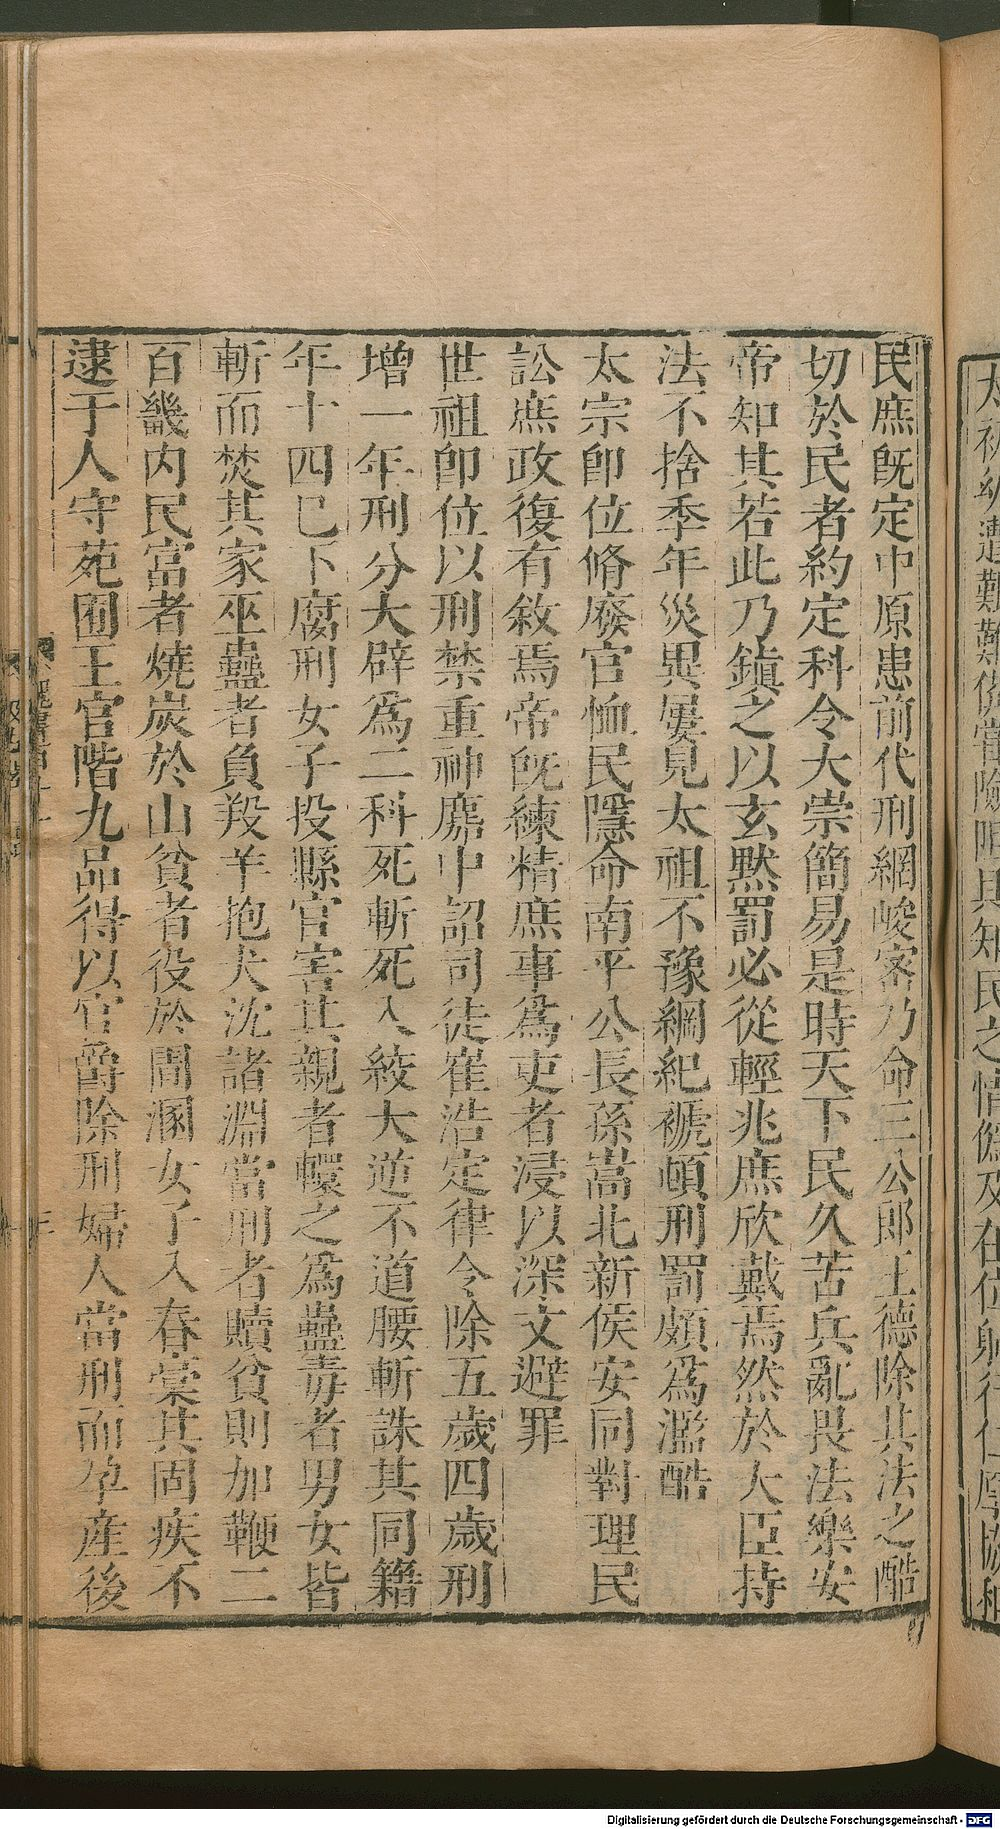 民庶旣定中原患前代刑網峻密乃命三公郎王德除其法之酷
切於民者約定科令大崇簡易是時天下民久苦兵亂畏法樂安
帝知其若此乃鎮之以玄黙罰必從輕兆庶欣戴焉然於大臣持
法不捨季年災異屢見太祖不豫綱紀褫頓刑罰頗爲濫酷
太宗卽位脩廢官恤民隱命南平公長孫嵩北新侯安同對理民
訟庶政復有敘焉帝旣練精庶事爲吏者浸以深文避罪
世祖卽位以刑禁重神䴥中詔司徒崔浩定律令除五歲四歲刑
增一年刑分大辟爲二科死斬死入絞大逆不道腰斬誅其同籍
年十四已下腐刑女子投縣官害其親者轘之爲蠱毒者男女皆
斬而焚其家巫蠱者負羖羊抱犬沈諸淵當刑者贖貧則加鞭二
百畿內民富者燒炭於山貧者役於圊溷女子入舂槀其固疾不
逮于人守苑囿王官階九品得以官爵除刑婦人當刑而孕產後
Digitalisierung gefördert durch die Deutsche Forschungsgemeinschaft - DFG